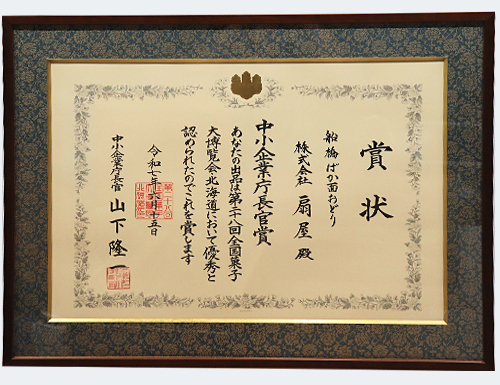 賞状
船橋ばか面おどり
株式会社 扇屋 殿
中小企業庁長官賞
あなたの出品は第二十八回全国菓子
大博覧会・北海道において優秀と
認められたのでこれを賞します
令和七年六月十五日
中小企業庁長官 山下隆一